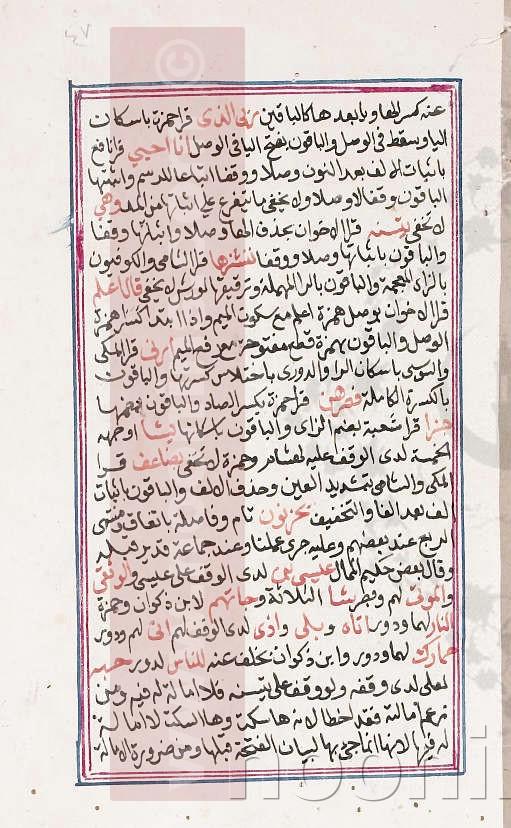 ٤٧
عنه كسر الهاء وبابعدها كالباقين ربي الذي قرا حمزة باسكان
اليا ويسقط في الوصل والباقون بفتح اليا في الوصل انا احيي قرا نافع
باثبات الالف بعد النون وصلا ووقفا اتباعا للرسم واثبتها
الباقون وقفا لا وصلا ولا يخفى ما يتفرع على اثباتها من المد وهي
لا يخفى يتسنه قرا الاخوان بحذف الها وصلا واثباتها وقفا
والباقون باثباتها وصلا ووقفا ننشزها قرا الشامي والكوفيون
بالزاي المعجمة والباقون بالرا المهملة وترقيقها لورش لا يخفى قال اعلم
قرا الاخوان بوصل همزة اعلم مع سكون الميم واذا ابتدا كسرا همزة
الوصل والباقون بهمزة قطع مفتوحة مع رفع الميم ارني قرا المكي
والسوسي باسكان الرا والدوري باختلاس كسرتها والباقون
بالكسرة الكاملة فصرهن قرا حمزة بكسر الصاد والباقون بضمها
جزا قرا شعبة بضم الزاي والباقون باسكانها يشا اوجهه
الخمسة لدى الوقف عليه لهشام وحمزة لا تخفى يضاعف قرا
المكي والشامي بتشديد العين وحذف الالف والباقون باثبات
لف بعد الضا والتخفيف يحزنون تام وفاصلة باتفاق ومنتهى
الربع عند بعضهم وعليه جرى عملنا وعند جماعة قدير قبله
وقال بعض حليم الممال عيسى بن لدى الوقف على عيسى والوثقى
والموتى لهم وبصر يشا الثلاثة وجاتهم لابن ذكوان وحمزة
النار لهما ودور اتاه وبلى واذى لدى الوقف لهم انى لهم ودور
حمارك لهما ودور وابن ذكوان بخلف عنه للناس لدور حبه
لعلى لدى وقفه ولو وقف على يتسنه فلا امالة له فيه ومن
زعم امالته فقد اخطا لانه ها سكت وها السكت لا امالة
له فيها لانها انما جي بها لبيان الفتحة قبلها ومن ضرورة الامالة
noonl